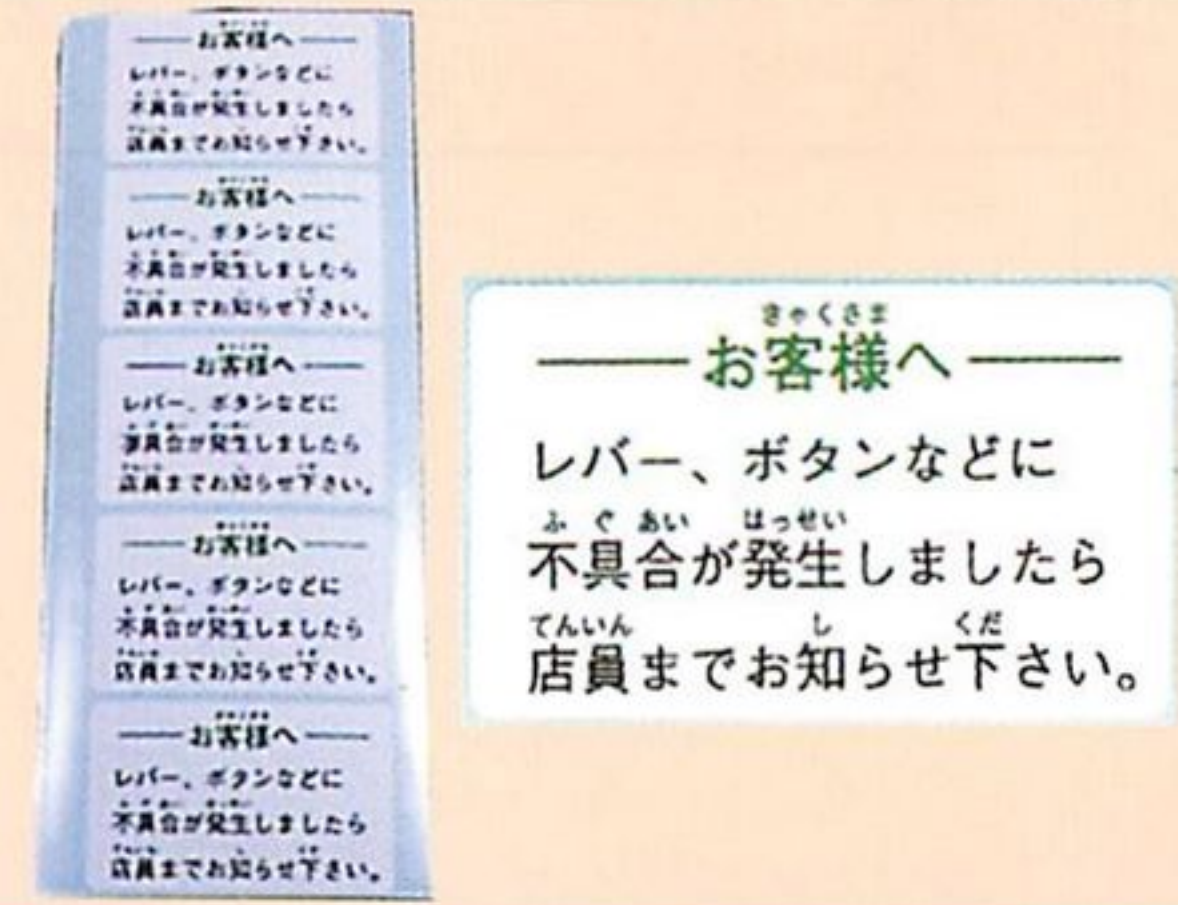 お客様へ
レバー、ボタンなどに
不具合が発生しましたら
店員までお知らせ下さい。
お客様へ
レバー、ボタンなどに
不具合が発生しましたら
店員までお知らせ下さい。
お客様へ
レバー、ボタンなどに
不具合が発生しましたら
店員までお知らせ下さい。
お客様へ
レバー、ボタンなどに
不具合が発生しましたら
店員までお知らせ下さい。
お客様へ
レバー、ボタンなどに
不具合が発生しましたら
店員までお知らせ下さい。
きゃくさま
お客様へ
レバー、ボタンなどに
ふぐあい はっせい
不具合が発生しましたら
てんいん し くだ
店員までお知らせ下さい。